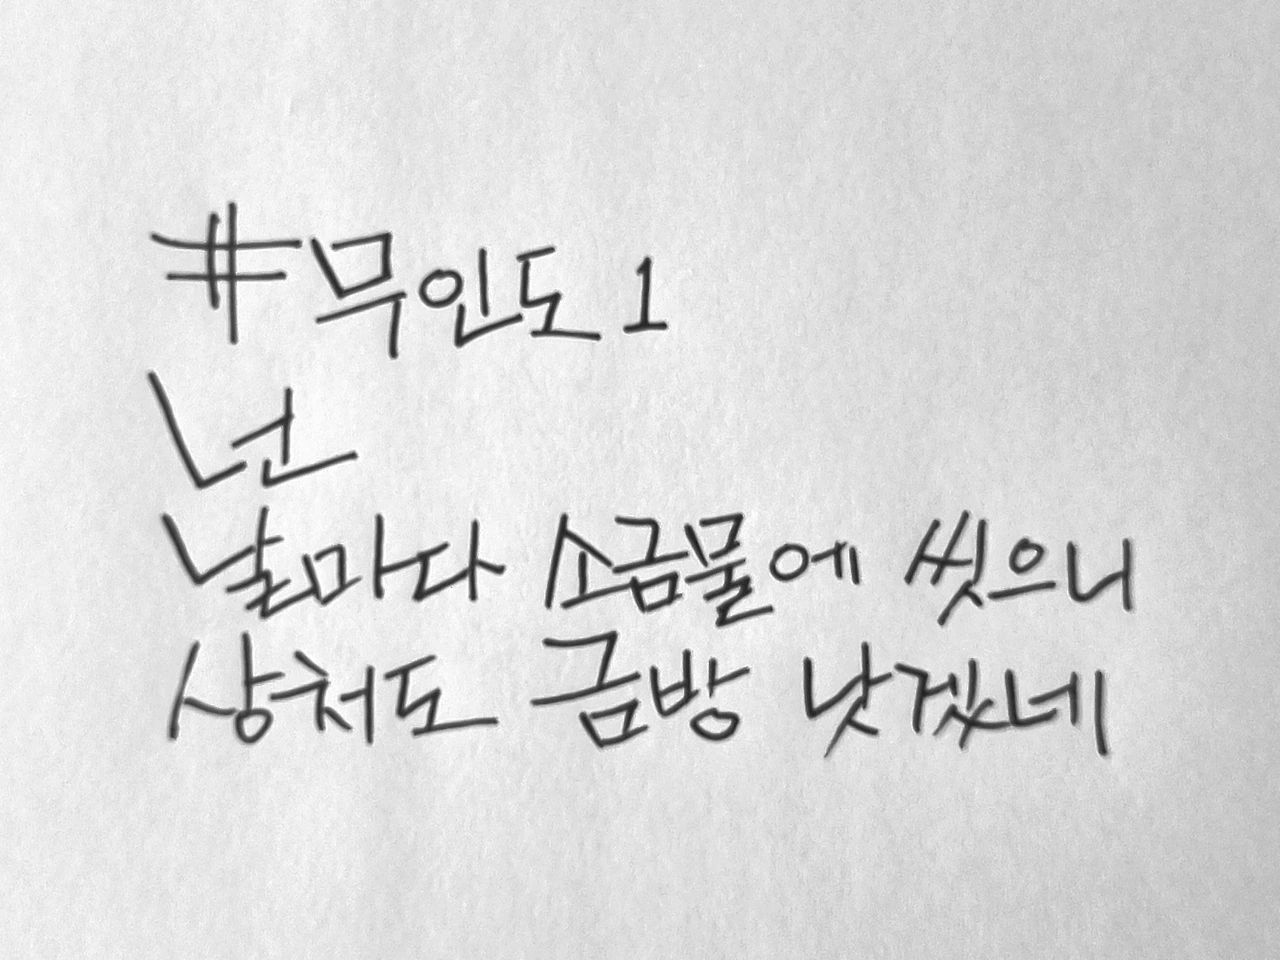 #무인도 1
넌
날마다 소금물에 씻으니
상처도 금방 낫겠네